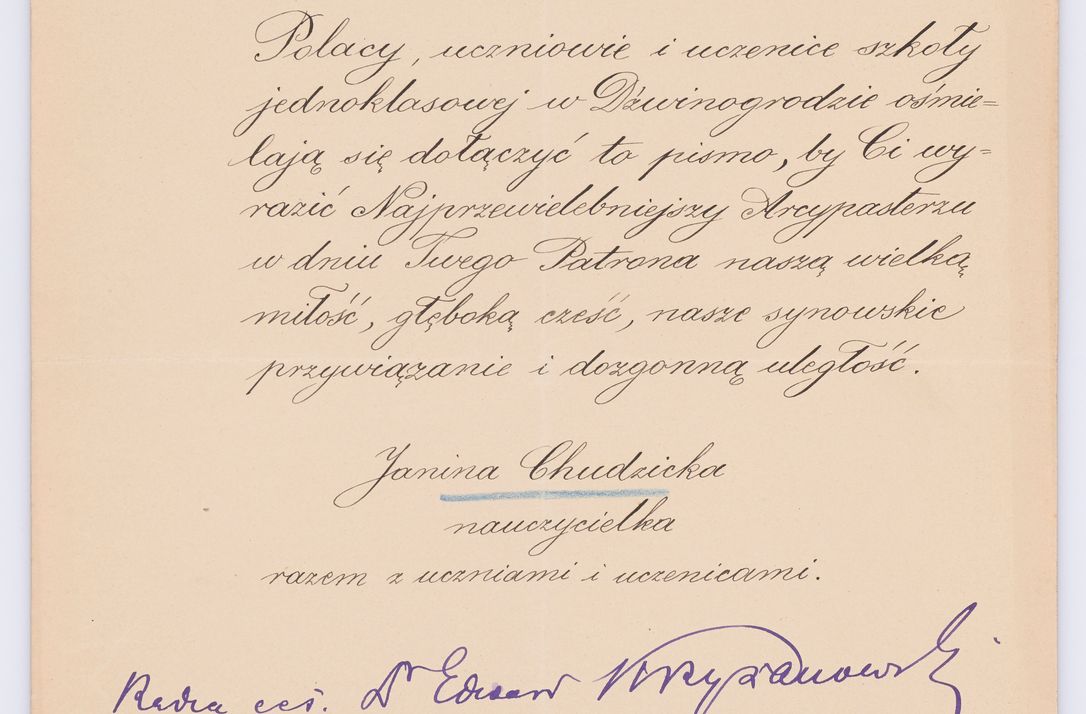 Polacy, uczniowie i uczenice szkoły
jednoklasowej w Dźwinogrodzie ośmie=
lają się dołączyć to pismo, by Ci wy=
razić Najprzewielebniejszy Arcypasterzu
w dniu Twego Patrona naszą wielką
miłość, głęboką cześć, nasze synowskie
przywiązanie i dozgonną uległość.
Janina Chudzicka
nauczycielka
razem z uczniami i uczenicami.
Radca ces. Dr Edward Krzyżanowski